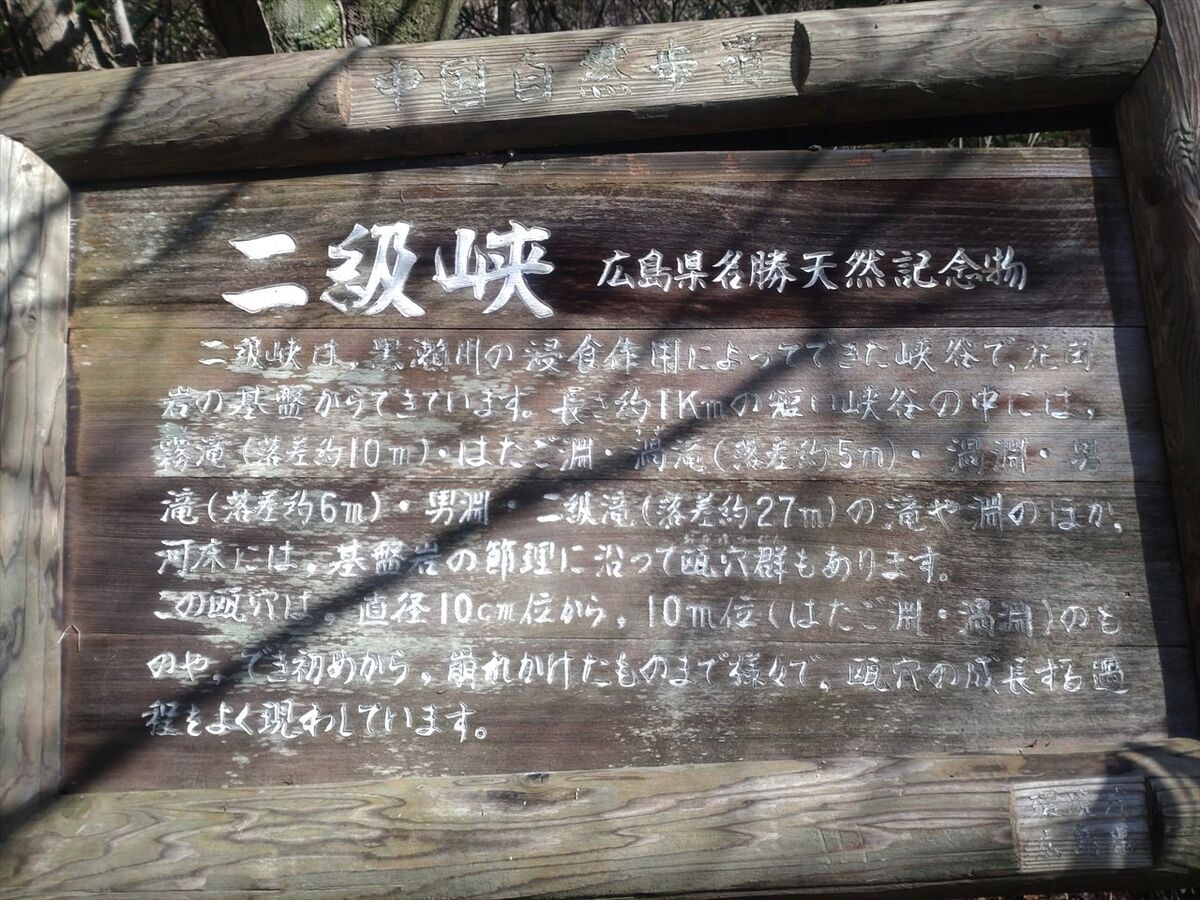 中国自然歩道
二級峡 広島県名勝天然記念物
二級峡は、黒瀬川の浸食作用によってできた峡谷で、花崗
岩の基盤からできています。長さ約1Kmの短い峡谷の中には、
霧滝(落差約10m)・はたご淵・渦滝(落差約5m)・渦淵・男
滝(落差約6m)・男淵・二級滝(落差約27m)の滝や淵のほか、
河床には、基盤岩の節理に沿って甌穴群もあります。
この甌穴は、直径10cm位から、10m位(はたご淵・渦淵)のも
のや、でき初めから、崩れかけたものまで様々で、甌穴の成長する過
程をよく現わしています。
環境庁
広島県